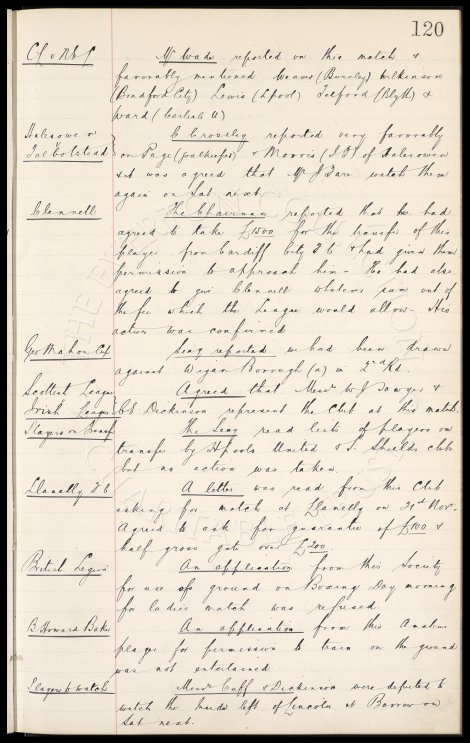 120
C.L. v N.E.L Mr Wade reported on this match &
favorably mentioned Weaver (Burnley) Wilkinson
(Bradford City) Lewis (L'pool) Telford (Blyth) &
Ward (Carlisle U)
Halesowen v C Crossley reported very favorably
on Page (goalkeeper) & Morris (I.F) of Halesowen
& it was agreed that Mr J Fare watch them
again on Sat next
Clennell The Chairman reported that he had
agreed to take £1500 for the transfer of this
player from Cardiff City F C & had given them
permission to approach him - He had also
agreed to give Clennell whatever sum out of
the fee which the League would allow - His
action was confirmed
Geo Mahon Cup Secy reported we had been drawn
against Wigan Borough (a) in 2nd Rd.
Scottish League Agreed that Messrs W J Sawyer &
Irish League } Dickinson represent the Club at this match.
Players on Transfer The Secy read lists of players on
transfer by H'pools United & S. Shields clubs
but no action was taken.
Llanelly F C A letter was read from this Club
asking for match at Llanelly on 21st Nov.
Agreed to ask for guarantee of £100 &
half gross gate over £200
British Legion An application from this Society
for use of ground on Boxing Day morning
for ladies match was refused.
B Howard Baker An application from this Amateur
player for permission to train on the ground
was not entertained
Players to watch Messrs Cuff & Dickinson were deputed to
watch the Inside left of Lincoln at Barrow on
Sat next.